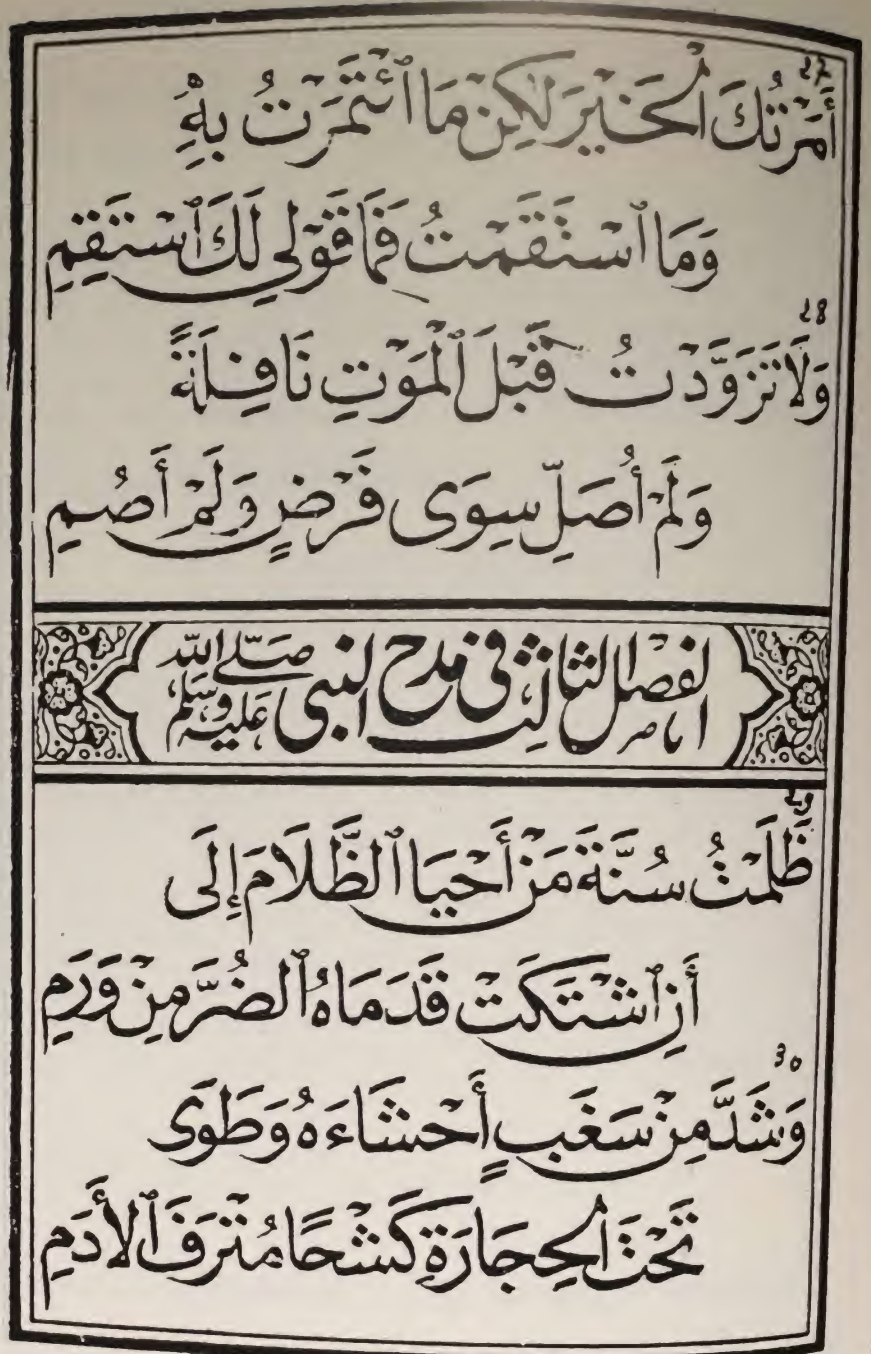 27
أَمَرْتُكَ ٱلْخَيْرَ لَكِنْ مَا ٱئْتَمَرْتُ بِهِ
وَمَا ٱسْتَقَمْتُ فَمَا قَوْلِي لَكَ ٱسْتَقِمِ
28
وَلَا تَزَوَّدْتُ قَبْلَ ٱلْمَوْتِ نَافِلَةً
وَلَمْ أُصَلِّ سِوَى فَرْضٍ وَلَمْ أَصُمِ
الفصل الثالث في مدح النبي صلى الله عليه وسلم
29
ظَلَمْتُ سُنَّةَ مَنْ أَحْيَا ٱلظَّلَامَ إِلَى
أَنِ ٱشْتَكَتْ قَدَمَاهُ ٱلضُّرَّ مِنْ وَرَمِ
30
وَشَدَّ مِنْ سَغَبٍ أَحْشَاءَهُ وَطَوَى
تَحْتَ ٱلْحِجَارَةِ كَشْحًا مُتْرَفَ ٱلْأَدَمِ